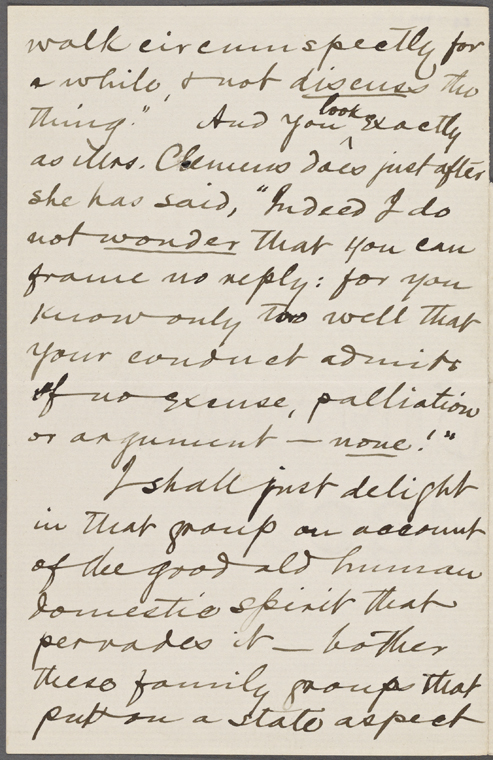 walk circumspectly for
a while, & not discuss the
thing." And you look exactly
as Mrs. Clemens does just after
she has said, "Indeed I do
not wonder that you can
frame no reply: for you
know only too well that
your conduct admits
of no excuse, palliation
or argument — none!"
I shall just delight
in that group on account
of the good old human
domestic spirit that
pervades it — bother
these family groups that
put on a state aspect